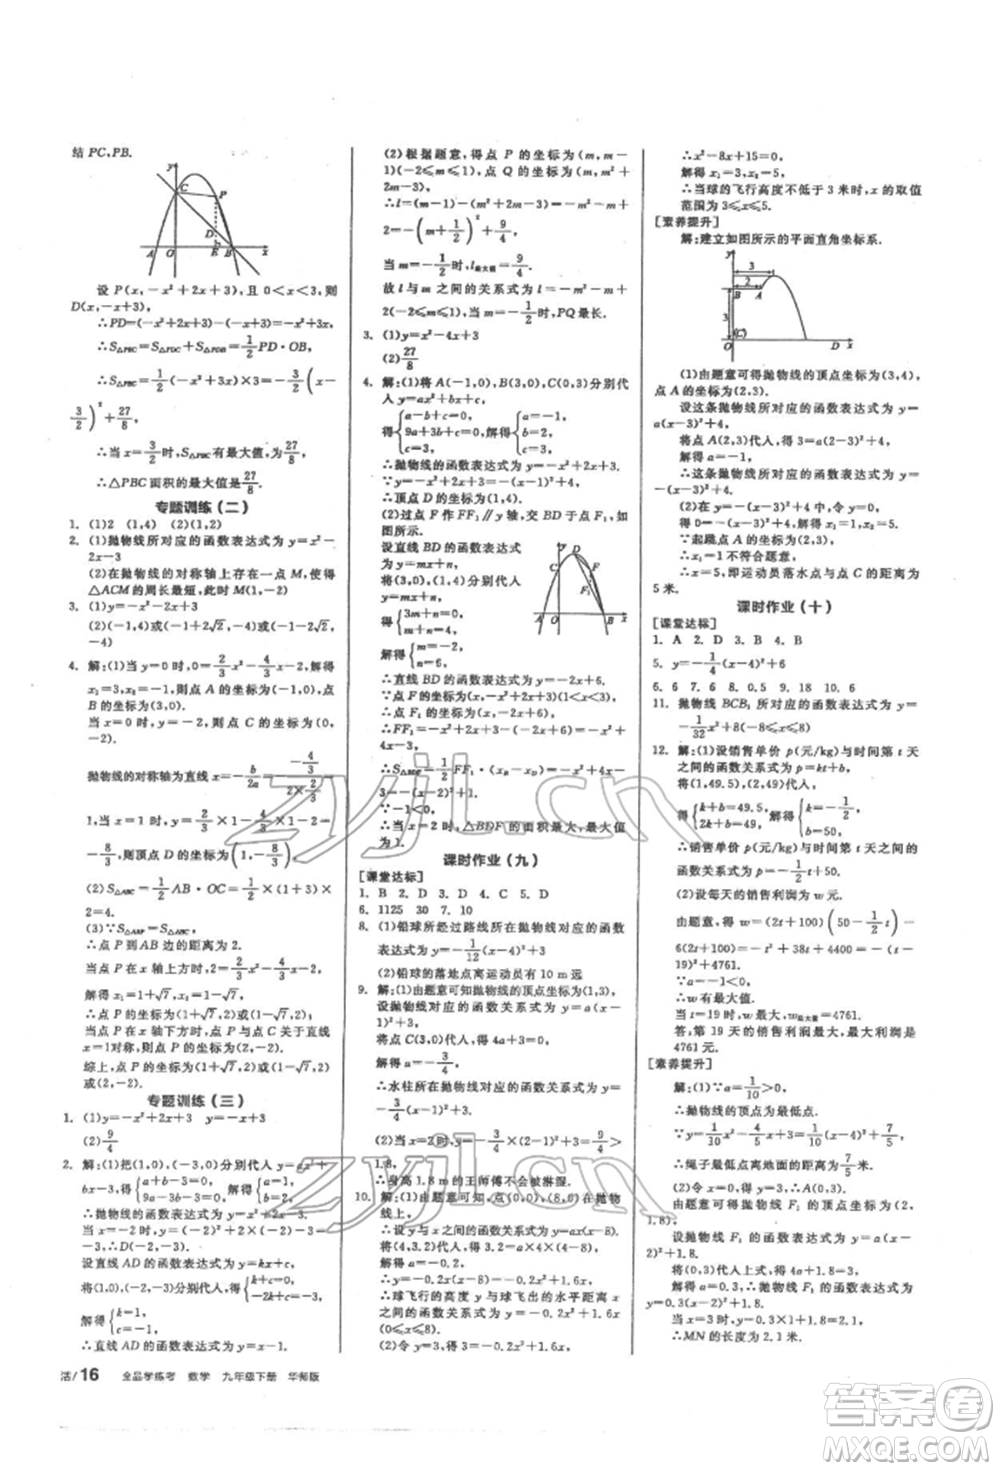 结 PC,PB.
y
C
P
D
A
O
E
B
x
设 P(x,－x²＋2x＋3),且 0＜x＜3,则
D(x,－x＋3),
∴PD=(－x²＋2x＋3)－(－x＋3)=－x²＋3x,
∴S△PBC=S△PDC＋S△PDB=1/2 PD·OB,
∴S△PBC=1/2(－x²＋3x)×3=－3/2(x－
3/2)²＋27/8,
∴当 x=3/2时,S△PBC有最大值,最大值为27/8,
∴△PBC 面积的最大值是27/8
专题训练（二）
1. (1)2 (1,4) (2)(1,2)
2. (1)抛物线所对应的函数表达式为 y=x²－
2x－3
(2)在抛物线的对称轴上存在一点 M,使得
△ACM 的周长最短,此时 M(1,－2)
3. (1)y=x²－2x－3
(2)(－1,4)或(1＋2√2,－4)或(1－2√2,
－4)
4. 解:(1)当 y=0 时,0=2/3x²－4/3x－2,解得
x₁=3,x₂=－1,则点 A 的坐标为(－1,0),点
B 的坐标为(3,0).
当 x=0 时,y=－2,则点 C 的坐标为(0,
－2).
抛物线的对称轴为直线 x=－b/2a=－(－4/3)/(2×2/3)=
1,当 x=1 时,y=2/3×1²－4/3×1－2=
－8/3,则顶点 D 的坐标为(1,－8/3).
(2)S△ABC=1/2AB·OC=1/2×(1＋3)×
2=4.
(3)∵S△ABP=S△ABC,
∴点 P 到 AB 边的距离为 2.
当点 P 在 x 轴上方时,2=2/3x²－4/3x－2,
解得 x₁=1＋√7,x₂=1－√7,
∴点 P 的坐标为(1＋√7,2)或(1－√7,2);
当点 P 在 x 轴下方时,点 P 与点 C 关于直线
x=1对称,则点 P(2,－2).
综上,点 P 的坐标为(1＋√7,2)或(1－√7,
2)或(2,－2).
专题训练（三）
1. (1)y=－x²＋2x＋3 y=－x＋3
(2)9/4
2. 解:(1)把(1,0),(－3,0)代入函数表达式,得
∴抛物线的函数表达式为 y=x²＋2x－3.
当 x=－2 时,y=(－2)²＋2×(－2)－3=
－3,∴D(－2,－3).
设直线 AD 的函数表达式为 y=kx＋t.
将(1,0),(－2,－3)分别代入,得
解得{k=1, t=－1.
∴直线 AD 的函数表达式为 y=x－1.
(2)根据题意,得点 P 的坐标为(m,m－
1)(－2≤m≤1),点 Q 的坐标为(m,m²＋
2m－3),
∴l=(m－1)－(m²＋2m－3)=－m²－m＋2=
－(m＋1/2)²＋9/4,
当 m=－1/2时,l最大值=9/4.
故 l 与 m 之间的关系式为 l=－m²－m＋2
(－2≤m≤1),当 m=－1/2时,PQ 最长.
3. (1)y=x²－4x＋3
(2)27/8
4. 解:(1)将 A(－1,0),B(3,0),C(0,3)分别代
入 y=ax²＋bx＋c,
得{a－b＋c=0, 9a＋3b＋c=0, c=3, 解得{a=－1, b=2, c=3,
∴抛物线的函数表达式为 y=－x²＋2x＋3.
∵y=－x²＋2x＋3=－(x－1)²＋4,
∴顶点 D 的坐标为(1,4).
(2)过点 F 作 FF₁∥y 轴,交 BD 于点 F₁,如
图所示.
设直线 BD 的函数表
达式为 y=mx＋n.
将(3,0),(1,4)分别代
入,
得{3m＋n=0, m＋n=4,
解得{m=－2, n=6,
D
F
F₁
C
A
O
B
x
∴直线 BD 的函数表达式为 y=－2x＋6.
∵点 F 的坐标为(x,－x²＋2x＋3)(1＜x＜3),
∴点 F₁ 的坐标为(x,－2x＋6),
∴FF₁=－x²＋2x＋3－(－2x＋6)=－x²＋
4x－3,
∴S△BDF=1/2FF₁·(xB－xD)=－x²＋4x－
3=－(x－2)²＋1.
∵－1＜0,
∴当 x=2 时,△BDF 的面积最大,最大值
为1.
课时作业（九）
[课堂达标]
1. B 2. D 3. D 4. C 5. D
6. 1125 30 7. 10
8. (1)铅球所经过路线所在抛物线对应的函数
表达式为 y=－1/12(x－4)²＋3
(2)铅球的落地点离运动员有 10 m 远
9. 解:(1)由题意可知抛物线的顶点坐标为(1,3),
设抛物线对应的函数关系式为 y=a(x－
1)²＋3.
将点 C(3,0)代入,得 4a＋3=0,
解得 a=－3/4,
∴水柱所在抛物线对应的函数关系式为 y=
－3/4(x－1)²＋3(0≤x≤3).
(2)当 x=2时,y=－3/4×(2－1)²＋3=9/4＞
1.8,
∴身高 1.8 m 的王师傅不会被淋到.
10. 解:(1)由题意可知,点(0,0),(8,0)在抛
物线上,
∴设 y 与 x 之间的函数关系式为 y=ax(x－8).
将(4,3.2)代入,得 3.2=4a(4－8),
解得 a=－0.2,
∴y=－0.2x(x－8)=－0.2x²＋1.6x,
∴球飞行的高度 y 与球飞出的水平距离 x
之间的函数关系式为 y=－0.2x²＋1.6x.
(2)令 y=3,得－0.2x²＋1.6x=3,
∴x²－8x＋15=0,
解得 x₁=3,x₂=5,
∴当球的飞行高度不低于 3 米时,x 的取值
范围为 3≤x≤5.
[素养提升]
解:建立如图所示的平面直角坐标系.
y
3
2
A
B
3
O
(C)
D
x
(1)由题意可得抛物线的顶点坐标为(3,4),
点 A 的坐标为(2,3).
设这条抛物线所对应的函数表达式为 y=
a(x－3)²＋4,
将点 A(2,3)代入,得 3=a(2－3)²＋4,
解得 a=－1.
∴这条抛物线所对应的函数表达式为 y=
－(x－3)²＋4.
(2)在 y=－(x－3)²＋4 中,令 y=0,得
0=－(x－3)²＋4,
解得 x₁=5,x₂=1.
∵起跳点 A 的坐标为(2,3),
∴x=1 不符合题意,
∴x=5,即运动员落水点与点 C 的距离为
5 米.
课时作业（十）
[课堂达标]
1. A 2. D 3. B 4. B
5. y=－1/4(x－4)²＋6
6. 6 7. 6 8. 0.5 9. 18 10. 6
11. 抛物线 BCB₁ 所对应的函数表达式为 y=
－1/32x²＋8(－8≤x≤8)
12. 解:(1)设销售单价 p(元/kg)与时间第 t 天
之间的函数关系式为 p=kt＋b,
将(1,49.5),(2,49)代入,
得{k＋b=49.5, 2k＋b=49, 解得{k=－1/2, b=50.
∴销售单价 p(元/kg)与时间第 t 天之间的
函数关系式为 p=－1/2t＋50.
(2)设每天的销售利润为 w 元.
由题意,得 w=(2t＋100)(50－1/2t)－
6(2t＋100)=－t²＋38t＋4400=－(t－
19)²＋4761.
∵a=－1＜0,
∴w 有最大值.
当 t=19 时,w最大,w最大值=4761.
答:第 19 天的销售利润最大,最大利润是
4761 元.
[素养提升]
解:(1)∵a=1/10＞0,
∴抛物线的顶点为最低点.
∵y=1/10x²－4/5x＋3=1/10(x－4)²＋7/5,
∴绳子最低点离地面的距离为7/5米.
(2)令 x=0,得 y=3,∴A(0,3),C(8,3).
由题意可得抛物线 F₁ 的顶点坐标为(2,
1.8).
设抛物线 F₁ 的函数关系式为 y=
a(x－2)²＋1.8.
将(0,3)代入上式,得 4a＋1.8=3,
解得 a=0.3,∴抛物线 F₁ 的函数关系式为
y=0.3(x－2)²＋1.8.
当 x=3 时,y=0.3×1＋1.8=2.1,
∴MN 的长度为 2.1 米.
活/16 全品学练考 数学 九年级下册 华师版
zyjl.cn
zyjl.cn
答案圈
MXQE.COM